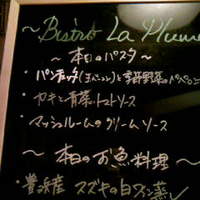 〜Bistro La Plume
〜本日のパスタ〜
・パンチェッタ と 野菜の ペペロン
・カキと青菜のトマトソース
・マッシュルームのクリームソース
〜本日のお魚料理〜
・豊浜産 スズキの白ワイン蒸し